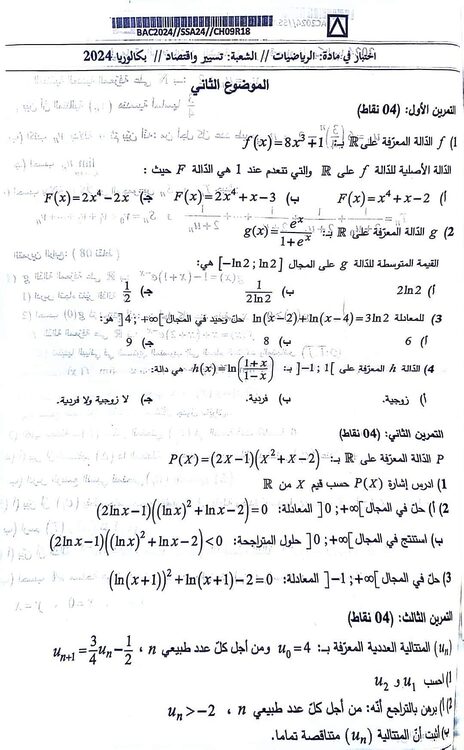 BAC2024//SSA24//CH09R18
اختبار في مادة: الرياضيات // الشعبة: تسيير واقتصاد // بكالوريا 2024
الموضوع الثاني
التمرين الأول: (04 نقاط)
1) f الدّالة المعرّفة على ℝ بـ: f(x)=8x³+1
الدّالة الأصلية للدّالة f على ℝ والتي تنعدم عند 1 هي الدّالة F حيث :
أ) F(x)=x⁴+x−2 ب) F(x)=2x⁴+x−3 ج) F(x)=2x⁴−2x
2) g الدّالة المعرّفة على ℝ بـ: g(x)=eˣ/(1+eˣ)
القيمة المتوسطة للدّالة g على المجال [−ln2 ; ln2] هي:
أ) 2ln2 ب) 1/(2ln2) ج) 1/2
3) للمعادلة ln(x−2)+ln(x−4)=3ln2 حلّ وحيد في المجال ]4 ; +∞[ هو:
أ) 6 ب) 8 ج) 9
4) الدّالة h المعرّفة على ]−1 ; 1[ بـ: h(x)=ln((1+x)/(1−x)) هي دالة:
أ) زوجية. ب) فردية. ج) لا زوجية ولا فردية.
التمرين الثاني: (04 نقاط)
P الدّالة المعرّفة على ℝ بـ: P(X)=(2X−1)(X²+X−2)
1) ادرس إشارة P(X) حسب قيم X من ℝ
2) أ) حلّ في المجال ]0 ; +∞[ المعادلة: (2ln x−1)((ln x)²+ln x−2)=0
ب) استنتج في المجال ]0 ; +∞[ حلول المتراجحة: (2ln x−1)((ln x)²+ln x−2)<0
3) حلّ في المجال ]−1 ; +∞[ المعادلة: (ln(x+1))²+ln(x+1)−2=0
التمرين الثالث: (04 نقاط)
(uₙ) المتتالية العددية المعرّفة بـ: u₀=4 ومن أجل كلّ عدد طبيعي n ، uₙ₊₁=3/4uₙ−1/2
1) احسب u₁ و u₂
2) أ) برهن بالتراجع أنّه: من أجل كلّ عدد طبيعي n ، uₙ>−2
ب) أثبت أنّ المتتالية (uₙ) متناقصة تماما.